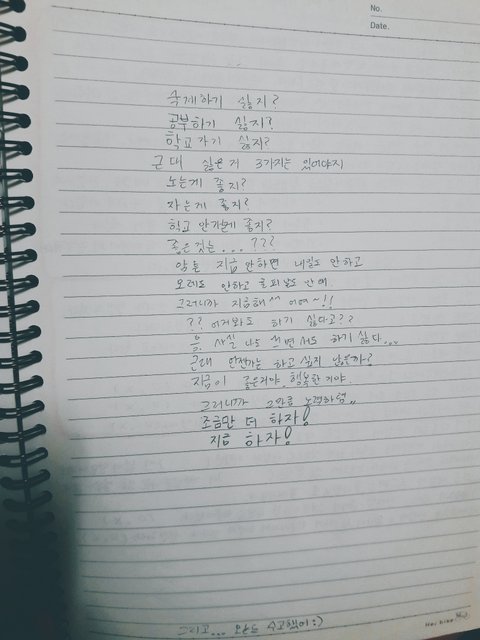 No.
Date.
숙제하기 싫지?
공부하기 싫지?
학교가기 싫지?
근데 싫은거 3가지는 있어야지
노는게 좋지?
자는게 좋지?
학교 안가는게 좋지?
좋은것는...???
암튼 지금 안하면 내일도 안하고
모레도 안하고 글피도 안해.
그러니까 지금해^^ 어여~!!
?? 어거봐도 하기 싫다고??
응. 사실 나도 쓰면서도 하기 싫다...
근데 언젠가는 하고 싶지 않을까?
지금이 좋은거야 행복한거야.
그러니까 그만큼 노력하렴..
조금만 더 하자!
지금 하자!
그리고... 오늘도 수고했어:)